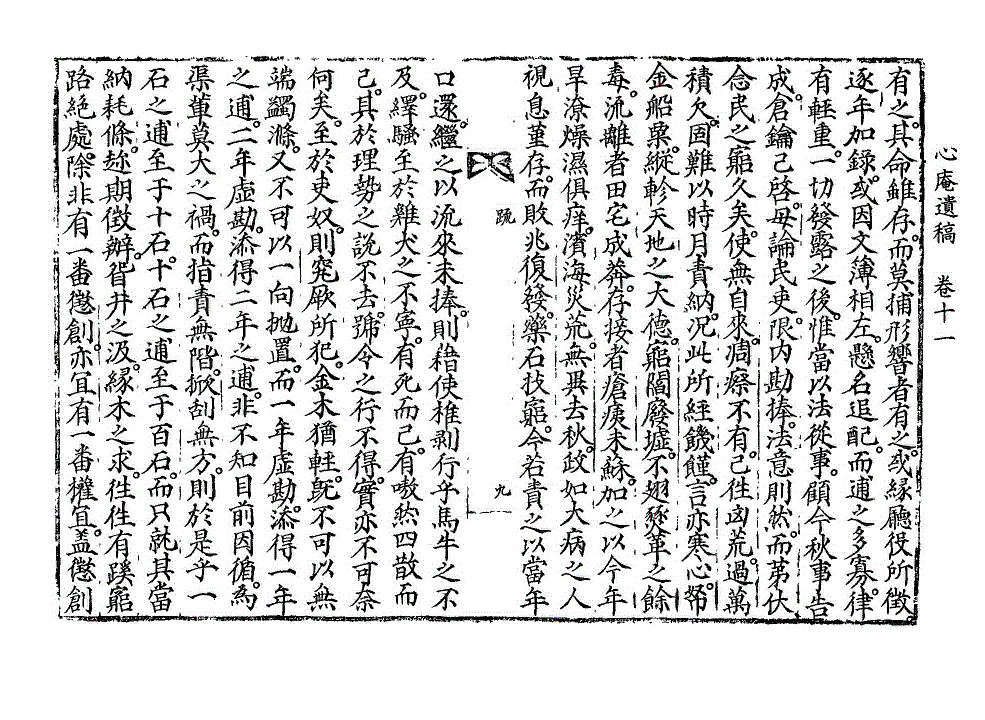 心庵遺稿 卷十一
有之。其命雖存。而莫捕形響者有之。或緣廳役所徵。
逐年加錄。或因文簿相左。懸名追配。而逋之多寡。律
有輕重。一切發露之後。惟當以法從事。顧今秋事告
成。倉鑰已啓。毋論民吏。限內勘捧。法意則然。而第伏
念民之竆久矣。使無自來凋瘵不有。已徃凶荒。過萬
積欠。固難以時月責納。况此所經饑饉。言亦寒心。帑
金船粟。縱軫天地之大德。竆閻廢墟。不翅燹革之餘
毒。流離者田宅成莽。存接者瘡痍未蘇。加之以今年
旱潦燥濕俱痒。濱海災荒。無異去秋。政如大病之人
視息菫存。而敗兆復發。藥石技竆。今若責之以當年
疏
九
口還。繼之以流來未捧。則藉使椎剥行乎馬牛之不
及。繹騷至於雞犬之不寧。有死而已。有嗷然四散而
已。其於理勢之說不去。號令之行不得。實亦不可奈
何矣。至於吏奴。則究厥所犯。金木猶輕。旣不可以無
端蠲滌。又不可以一向抛置。而一年虛勘。添得一年
之逋。二年虛勘。添得二年之逋。非不知目前因循。爲
渠輩莫大之禍。而指責無階。掀刮無方。則於是乎一
石之逋至于十石。十石之逋至于百石。而只就其當
納耗條。趂期徵辦。眢井之汲。緣木之求。徃徃有蹊竆
路絶處。除非有一番懲創。亦宜有一番權宜。盖懲創